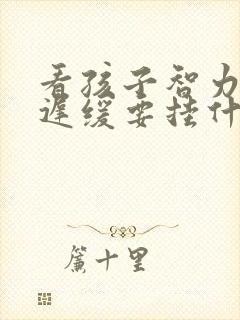 看孩子智力
迟缓要挂什
簾十里